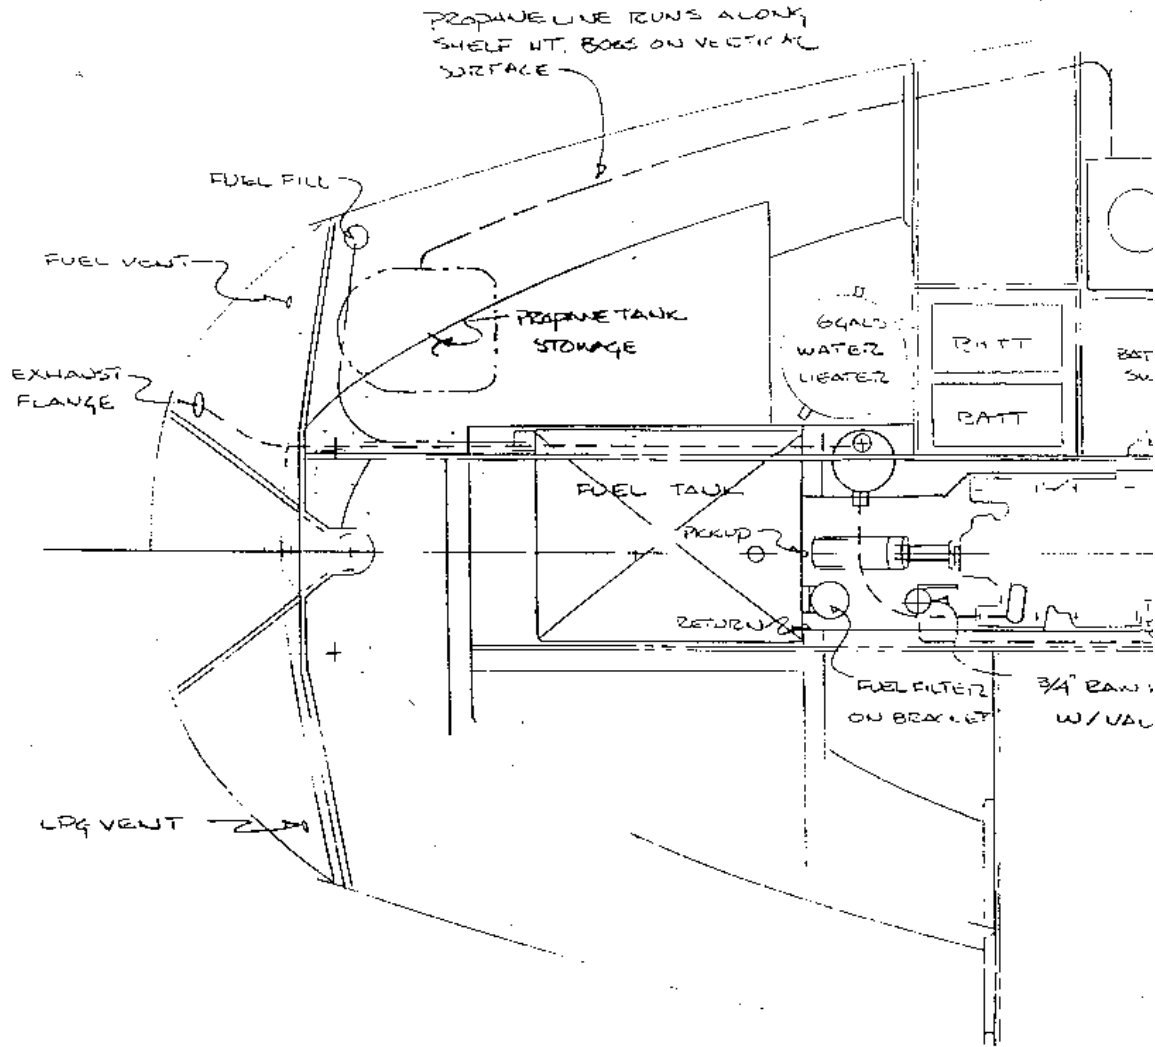 PROPANE LINE RUNS ALONG
SHELF HT. BOBS ON VERTICAL
SURFACE
FUEL FILL
FUEL VENT
PROPANE TANK
STOWAGE
6 GALS
WATER
HEATER
BATT
BATT
BAT
SW
EXHAUST
FLANGE
FUEL TANK
PICKUP
RETURN
FUEL FILTER
ON BRACKET
3/4"
W/VAL
LPG VENT